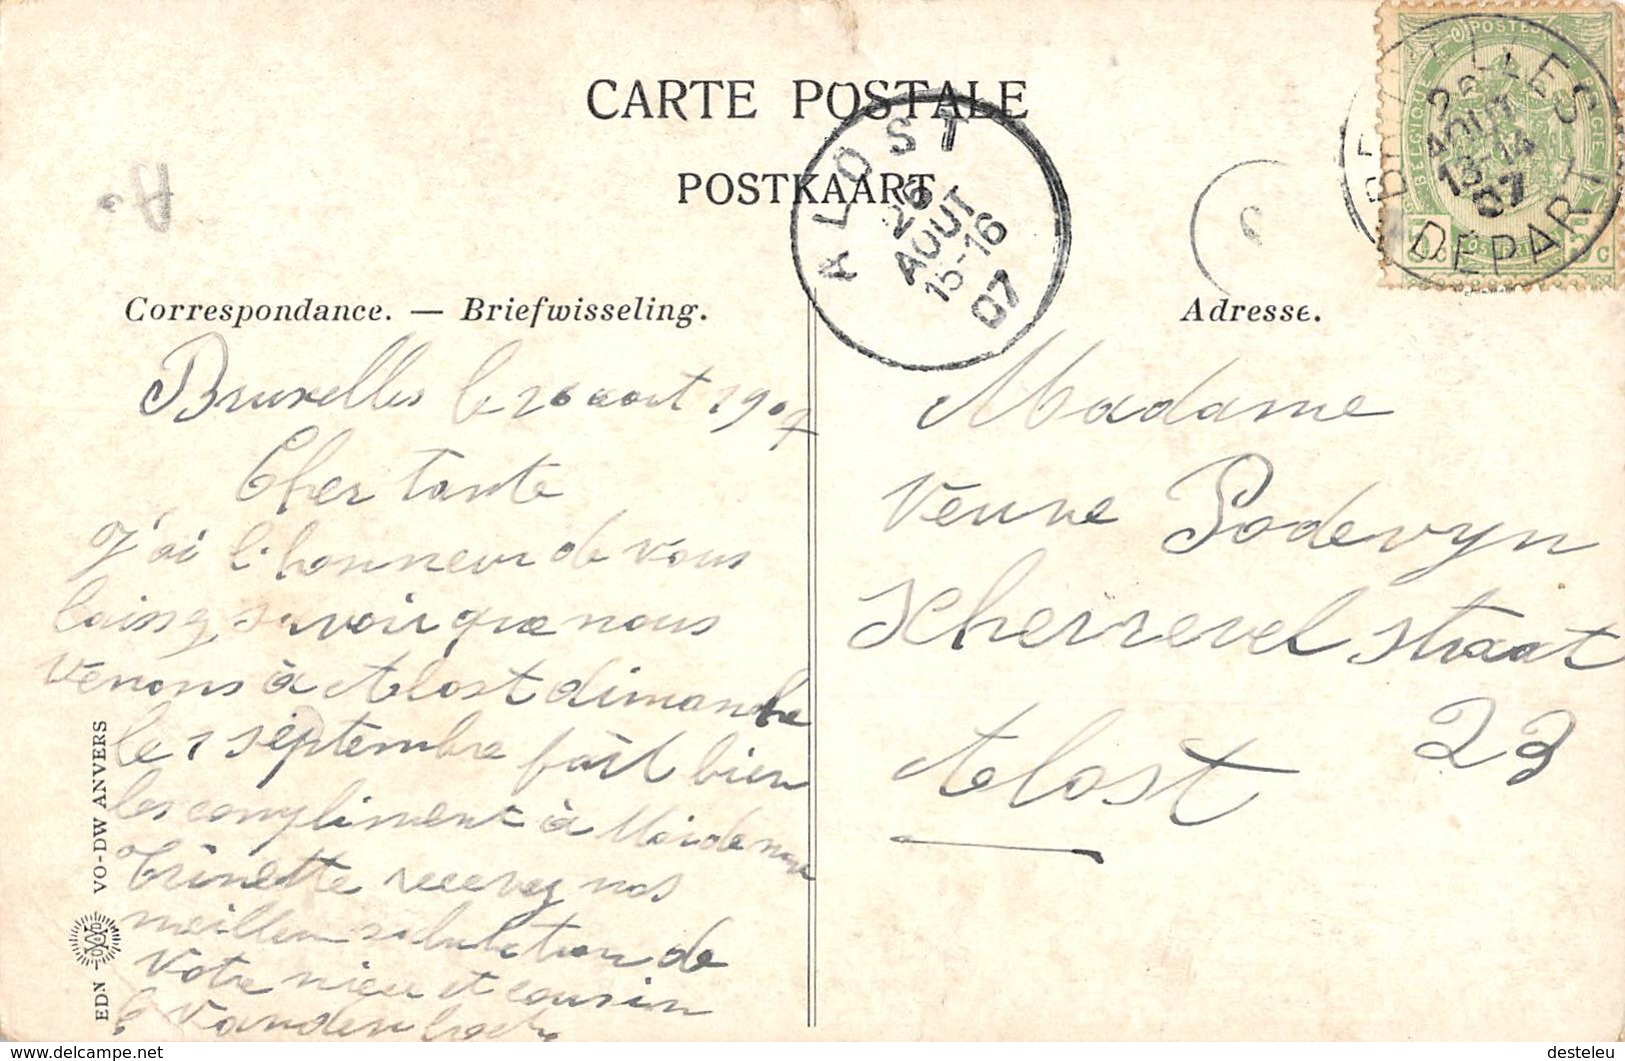 CARTE POSTALE
POSTKAART
Correspondance. — Briefwisseling.
Adresse.
ALOST
26
AOUT
15-16
07
BRUXELLES
26
AOUT
13-14
07
DÉPART
POSTES
BELGIQUE
Bruxelles le 26 aout 1907
Cher tante
J'ai l'honneur de vous
laissez savoir que nous
venons à Alost dimanche
le 1 septembre fait bien
les compliment à
Trinette recevez nos
meilleur salutation de
Votre nieu et cousin
Madame
Veuve Podevyn
Scheirrevel straat
23
Alost
EDN VO-DW ANVERS
www.delcampe.net
desteleu